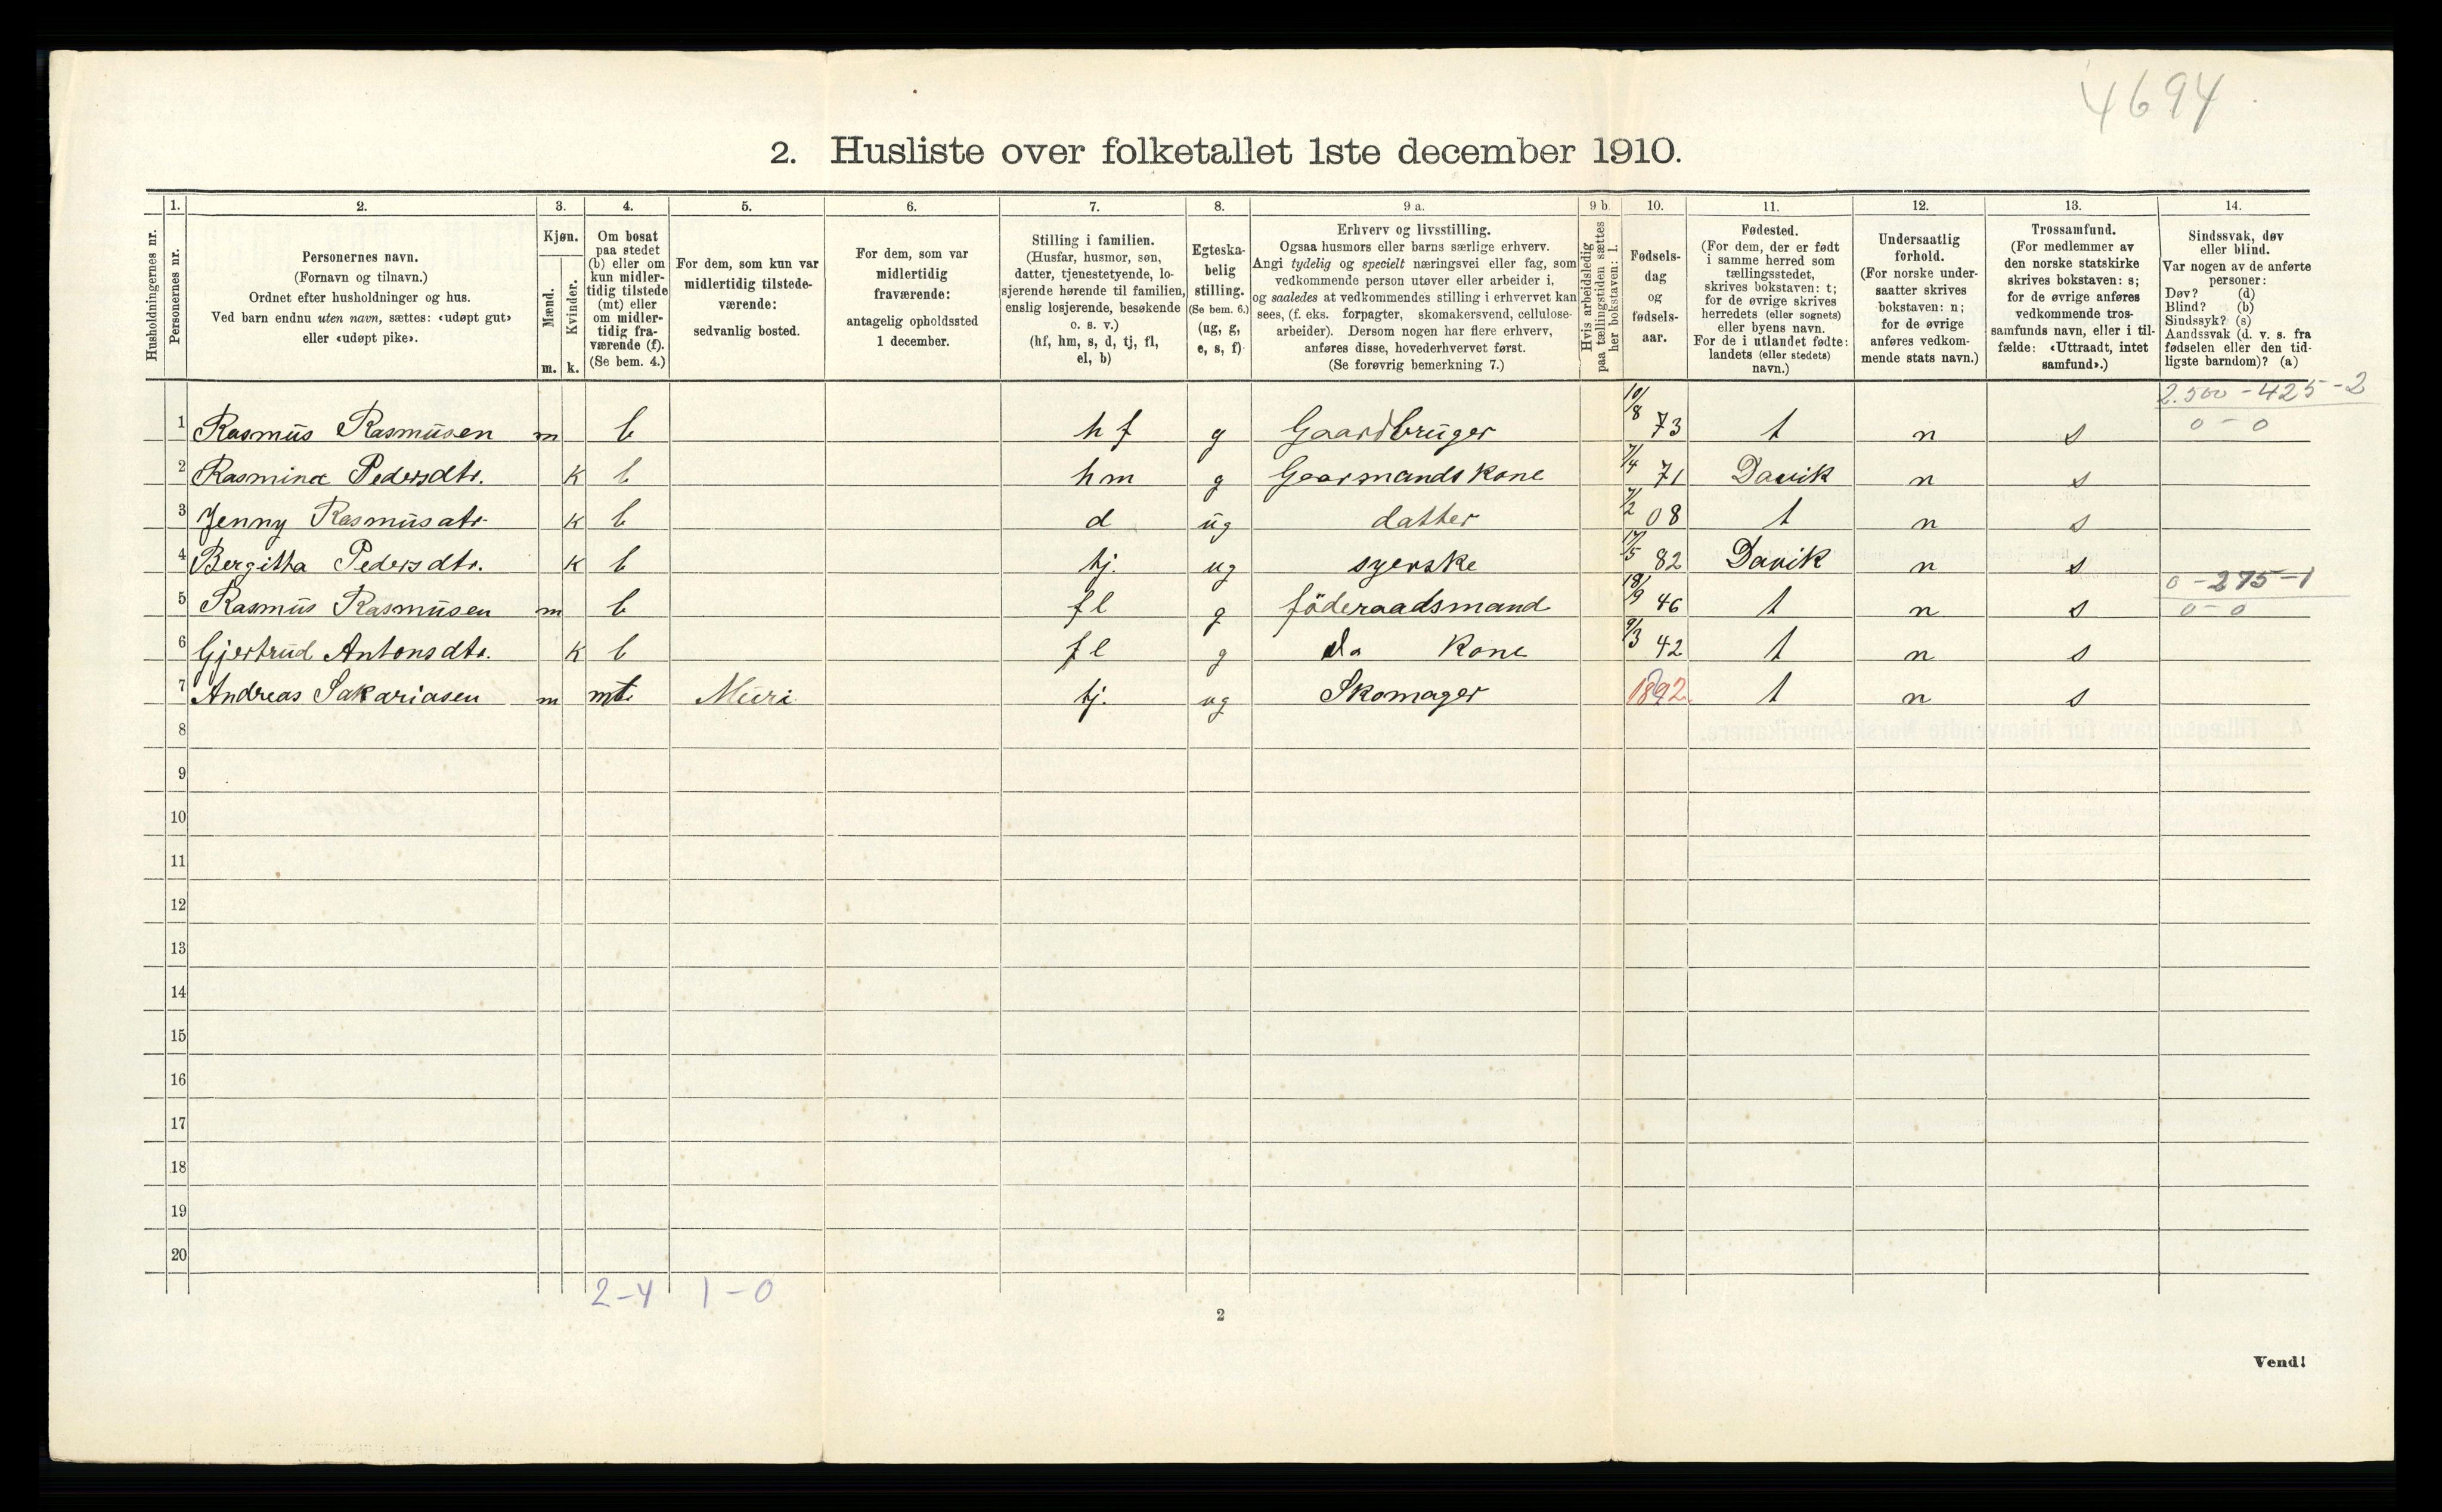 4694
2. Husliste over folketallet 1ste december 1910.
1. 2. 3. 4. 5. 6. 7. 8. 9 a. 9 b. 10. 11. 12. 13. 14.
Husholdningernes nr.
Personernes nr.
Personernes navn.
(Fornavn og tilnavn.)
Ordnet efter husholdninger og hus.
Ved barn endnu uten navn, sættes: «udøpt gut»
eller «udøpt pike».
Kjøn.
Mænd.
Kvinder.
m. k.
Om bosat
paa stedet
(b) eller om
kun midler-
tidig tilstede
(mt) eller
om midler-
tidig fra-
værende (f).
(Se bem. 4.)
For dem, som kun var
midlertidig tilstede-
værende:
sedvanlig bosted.
For dem, som var
midlertidig
fraværende:
antagelig opholdssted
1 december.
Stilling i familien.
(Husfar, husmor, søn,
datter, tjenestetyende, lo-
sjerende hørende til familien,
enslig losjerende, besøkende
o. s. v.)
(hf, hm, s, d, tj, fl,
el, b)
Egteska-
belig
stilling.
(Se bem. 6.)
(ug, g,
e, s, f)
Erhverv og livsstilling.
Ogsaa husmors eller barns særlige erhverv.
Angi tydelig og specielt næringsvei eller fag, som
vedkommende person utøver eller arbeider i,
og saaledes at vedkommendes stilling i erhvervet kan
sees, (f. eks. forpagter, skomakersvend, cellulose-
arbeider). Dersom nogen har flere erhverv,
anføres disse, hovederhvervet først.
(Se forøvrig bemerkning 7.)
Hvis arbeidsledig
paa tællingstiden sættes
her bokstaven: l.
Fødsels-
dag
og
fødsels-
aar.
Fødested.
(For dem, der er født
i samme herred som
tællingsstedet,
skrives bokstaven: t;
for de øvrige skrives
herredets (eller sognets)
eller byens navn.
For de i utlandet fødte:
landets (eller stedets)
navn.)
Undersaatlig
forhold.
(For norske under-
saatter skrives
bokstaven: n;
for de øvrige
anføres vedkom-
mende stats navn.)
Trossamfund.
(For medlemmer av
den norske statskirke
skrives bokstaven: s;
for de øvrige anføres
vedkommende tros-
samfunds navn, eller i til-
fælde: «Uttraadt, intet
samfund».)
Sindssvak, døv
eller blind.
Var nogen av de anførte
personer:
Døv? (d)
Blind? (b)
Sindssyk? (s)
Aandssvak (d. v. s. fra
fødselen eller den tid-
ligste barndom)? (a)
2.500-425-2
1 Rasmus Rasmusen m b h f g Gaardbruger 10/8 73 t n s 0-0
2 Rasmine Pedersdtr. k b hm g Gaarmands Kone 7/4 71 Davik n s
3 Jenny Rasmusdtr k b d ug datter 7/2 08 t n s
4 Bergitha Pedersdtr. k b tj. ug syerske 17/5 82 Davik n s
0-275-1
5 Rasmus Rasmusen m b fl g föderaadsmand 18/9 46 t n s 0-0
6 Gjertrud Antonsdtr. k b fl g do Kone 9/3 42 t n s
7 Andreas Sakariasen m mt Muri tj. ug Skomager 1892 t n s
8
9
10
11
12
13
14
15
16
17
18
19
20
2-4 1-0
2
Vend!